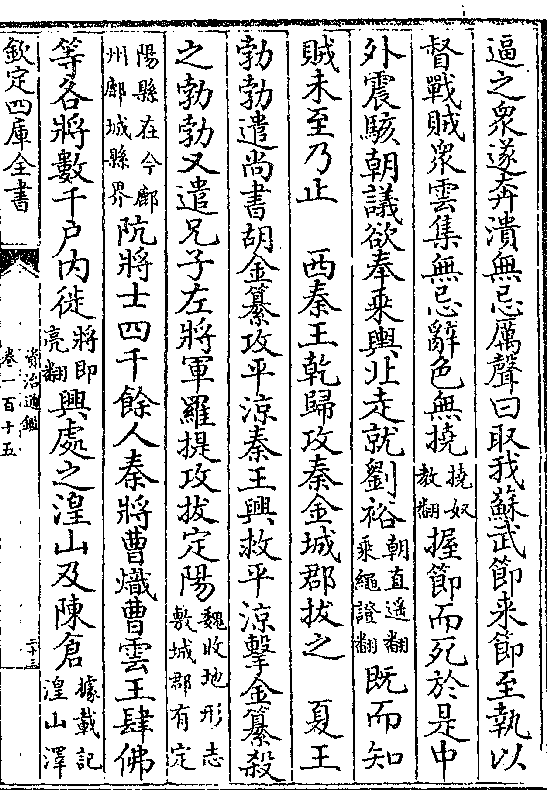 逼之衆遂奔潰無忌厲聲曰取我蘇武節来節至執以
督戰賊衆雲集無忌辭色無撓撓奴教翻握節而死於是中
外震駭朝議欲奉乘輿北走就劉裕朝直遥翻乘繩證翻既而知
賊未至乃止　西秦王乾歸攻秦金城郡拔之　夏王
勃勃遣尚書胡金纂攻平涼秦王興救平涼擊金纂殺
之勃勃又遣兄子左將軍羅提攻拔定陽魏收地形志敷城郡有定
陽縣在今鄜州鄜城縣界阬將士四千餘人秦將曹熾曹雲王肆佛
等各將數千户内徙將即亮翻興處之湟山及陳倉據載記湟山澤
欽定四庫全書
資治通鑑
卷一百十五